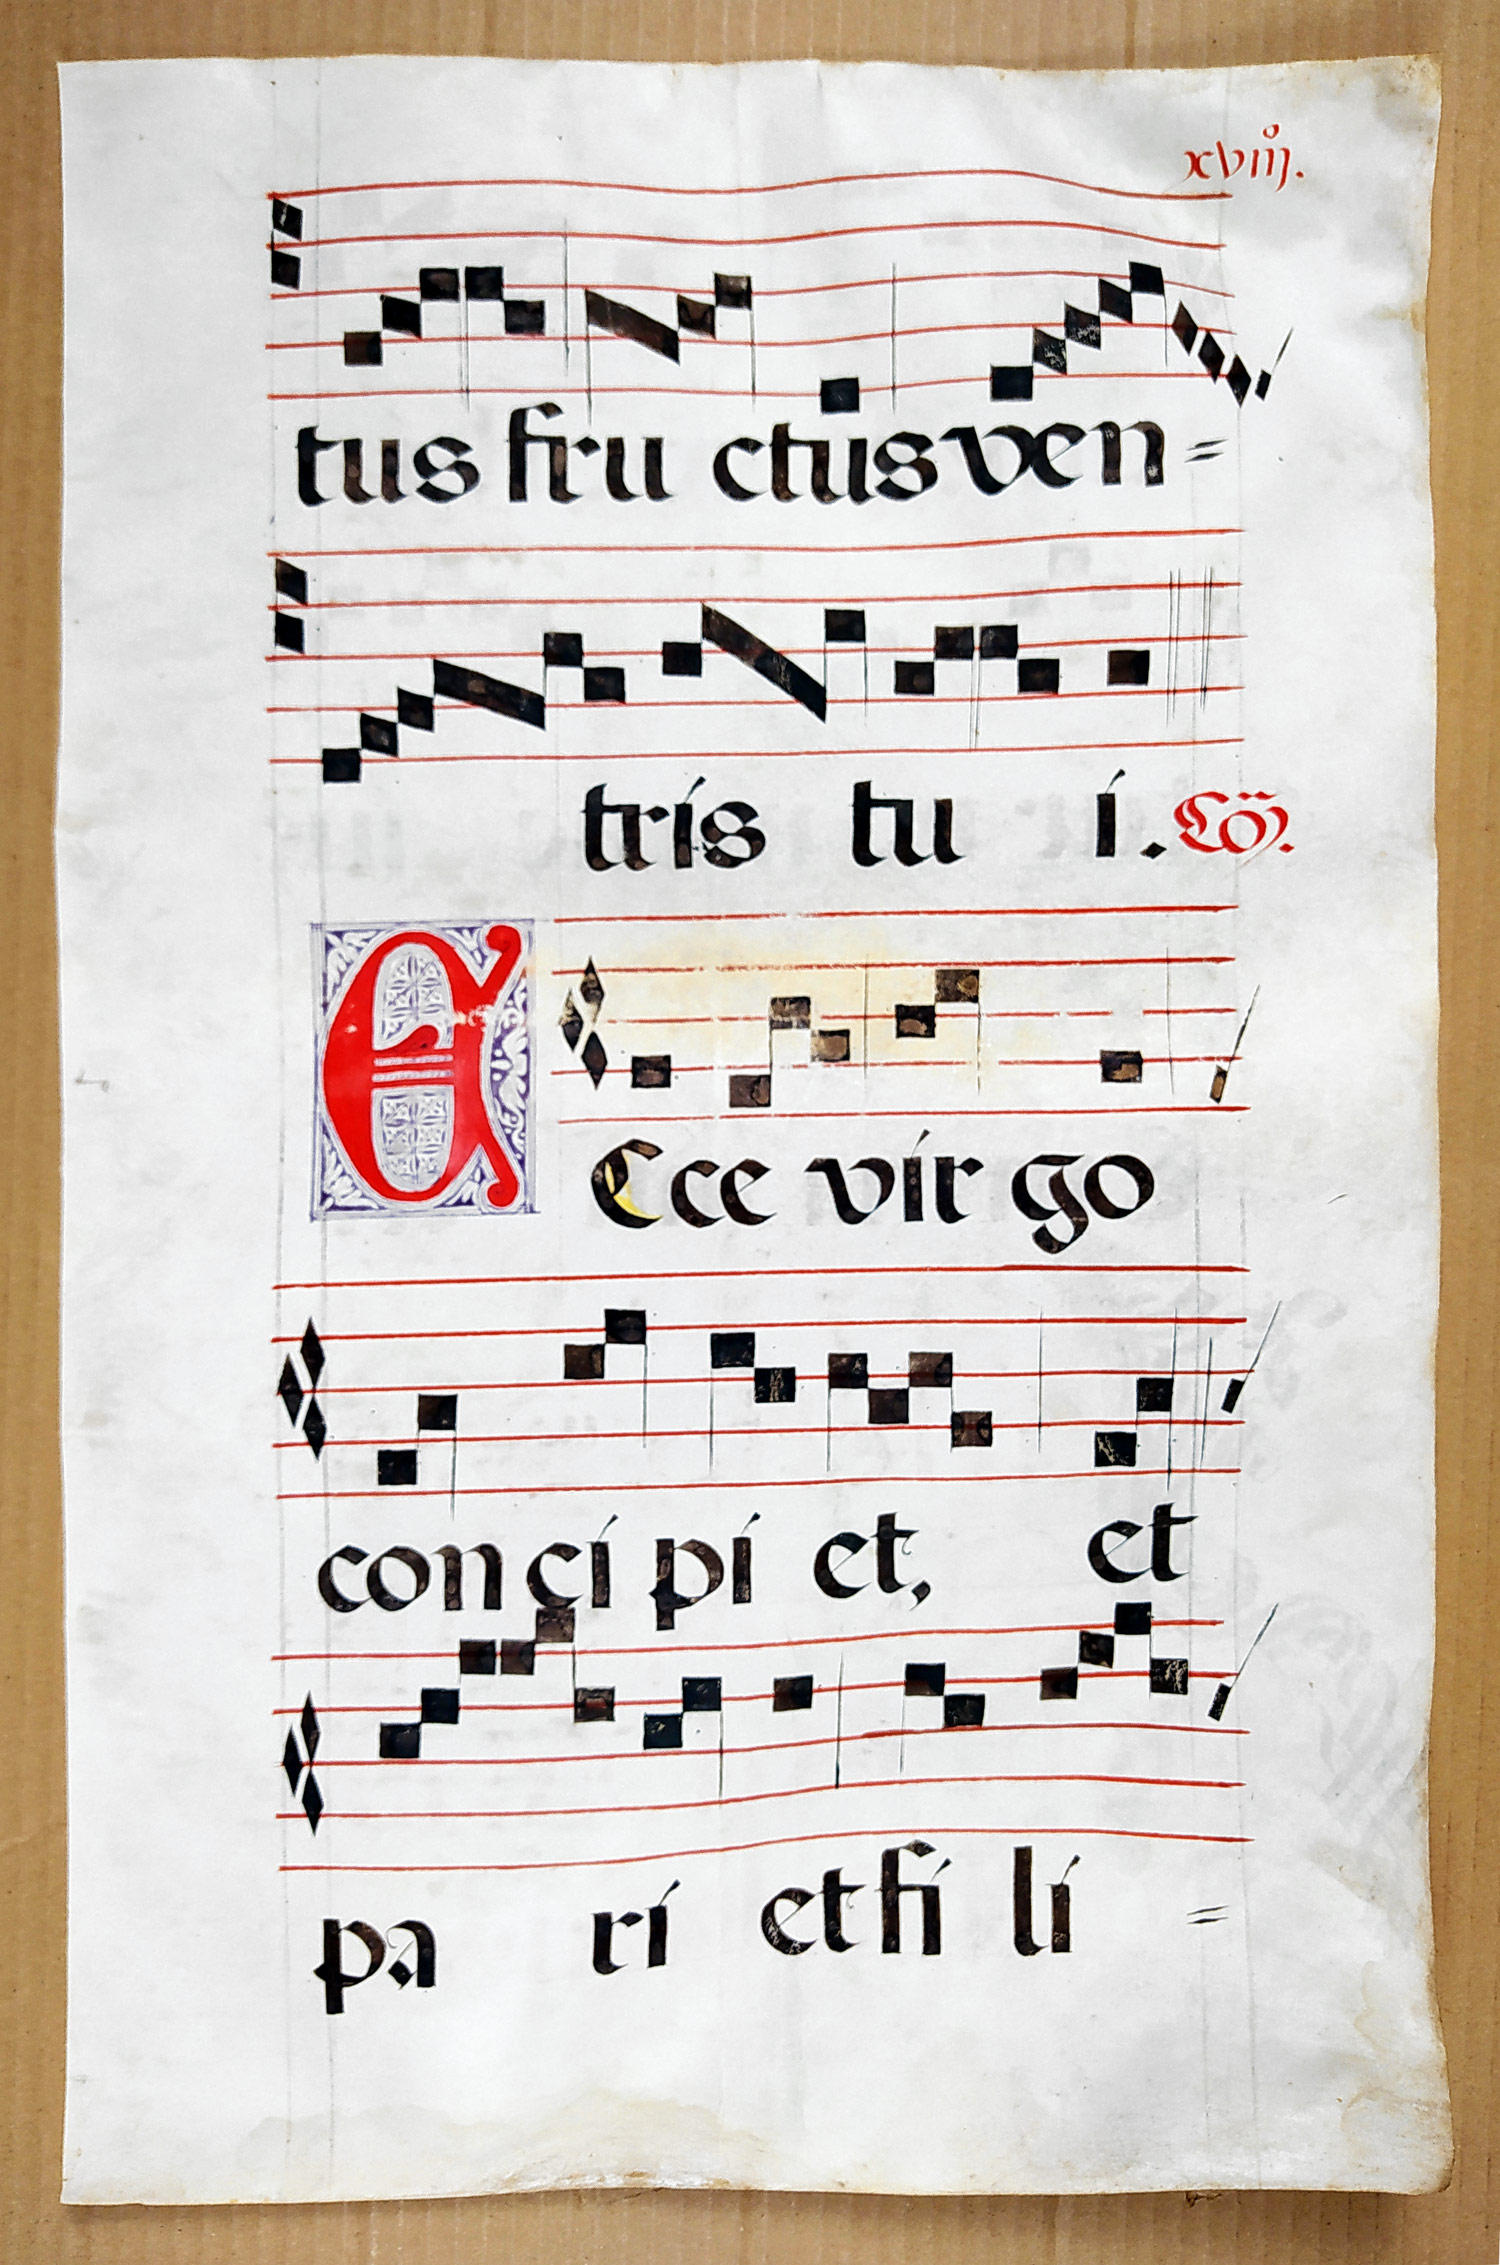 xviij.
tus fru ctus ven=
tris tu i. Cō.
ECce virgo
concipi et, et
pa ri et fi li=